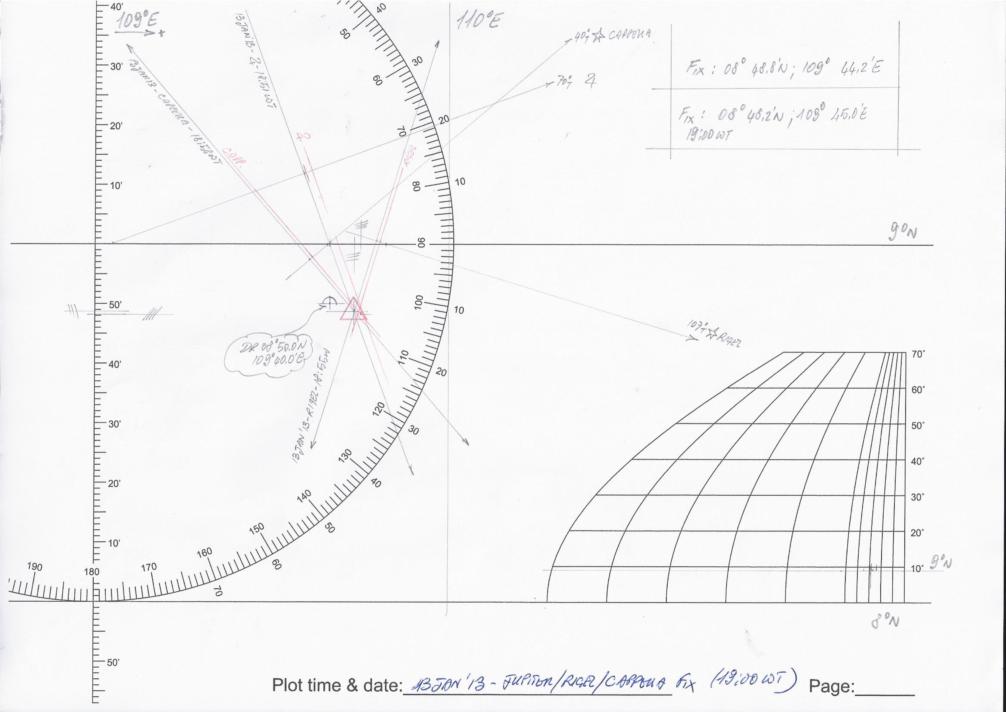 109°E
110°E
40°T ☆ CAPPELLA
70°T ♃
FIX: 08° 48.8'N; 109° 44.2'E
FIX: 08° 48.2'N; 109° 45.0'E
19:00 WT
13 JAN'13-♃-18:51 WT
CAP.
9°N
DR 08°50.0N
109°40.0'E
107°T ☆ RIGEL
9°N
8°N
40'
30'
20'
10'
50'
40'
30'
20'
10'
50'
40
50
30
60
20
70
10
80
90
100
10
110
20
120
30
130
40
140
50
150
60
160
70
170
180
190
70°
60°
50°
40°
30°
20°
10°
Plot time & date: 13 JAN'13 - JUPITER/RIGEL/CAPPELLA FIX (19:00 WT) Page: